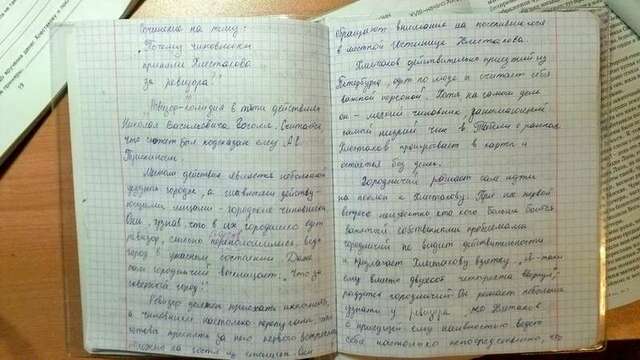 Сочинение на тему:
"Почему чиновники
приняли Хлестакова
за ревизора?"
"Ревизор"-комедия в пяти действиях
Николая Васильевича Гоголя. Считается,
что сюжет был подсказан ему А.С.
Пушкиным.
Местом действия является небольшой
городок, а главными действу-
ющими лицами - городские чиновники
Они, узнав, что в их городишко едет
ревизор, сильно переполошились, ведь
город в ужасном состоянии. Даже
сам городничий восклицает: "Что за
скверный город!"
Ревизор должен приехать инкогнито,
а чиновники настолько напуганы, что
готовы принять за него первого встречного
обращают внимание на поселившегося
в местной гостинице Хлестакова.
Хлестаков действительно приезжий из
Петербурга, одет по моде и считает себя
важной персоной. Хотя на самом деле
он - мелкий чиновник, занимающий
самый низкий чин в Табели о рангах
Хлестаков проигрывает в карты и
остаётся без денег.
Городничий решает сам идти
на поклон к Хлестакову. При их первой
встрече неизвестно, кто кого больше боится
занятый собственными проблемами
городничий не видит действительности
и предлагает Хлестакову взятку. "Я-таки
ему вместо двухсот четыреста ввернул",
радуется городничий. Он решает побольше
узнать у ревизора, но Хлестаков
с присущей ему наивностью ведёт
себя настолько непосредственно, что